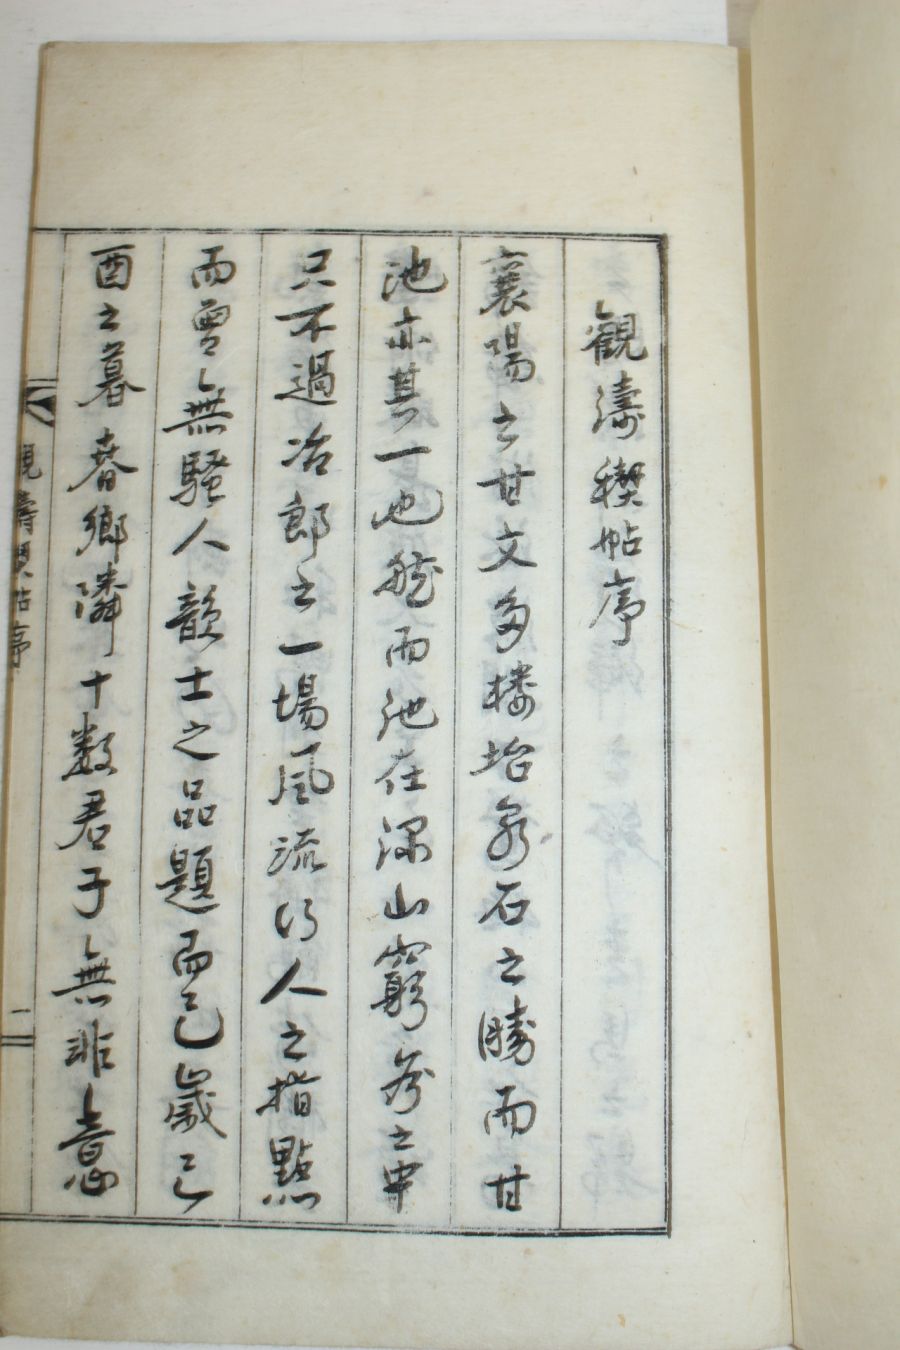 觀濤稧帖序
襄陽之甘文多樓坮泉石之勝而甘
池亦其一也然而池在深山窮之中
只不過冶郎之一場風流行人之指點
而無騷人韻士之品題而已歲己
酉之暮春鄕隣十數君子無非
觀濤稧帖序 一